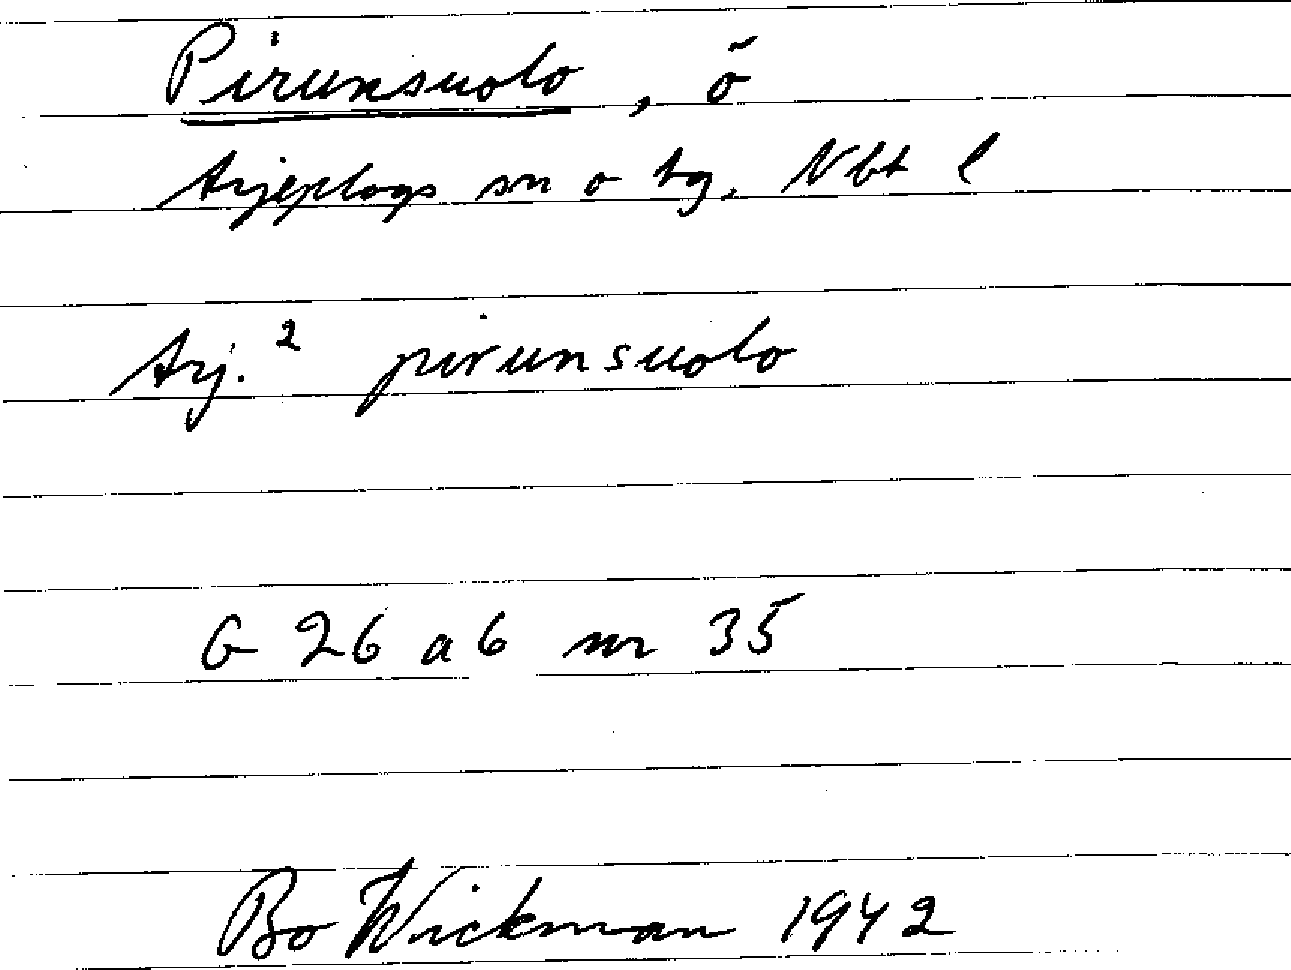 Pirunsuolo, ö
Arjeplogs sn o tg, Nbt l
Arj.² pirunsuolo
G 26 a 6 nr 35
Bo Wickman 1942